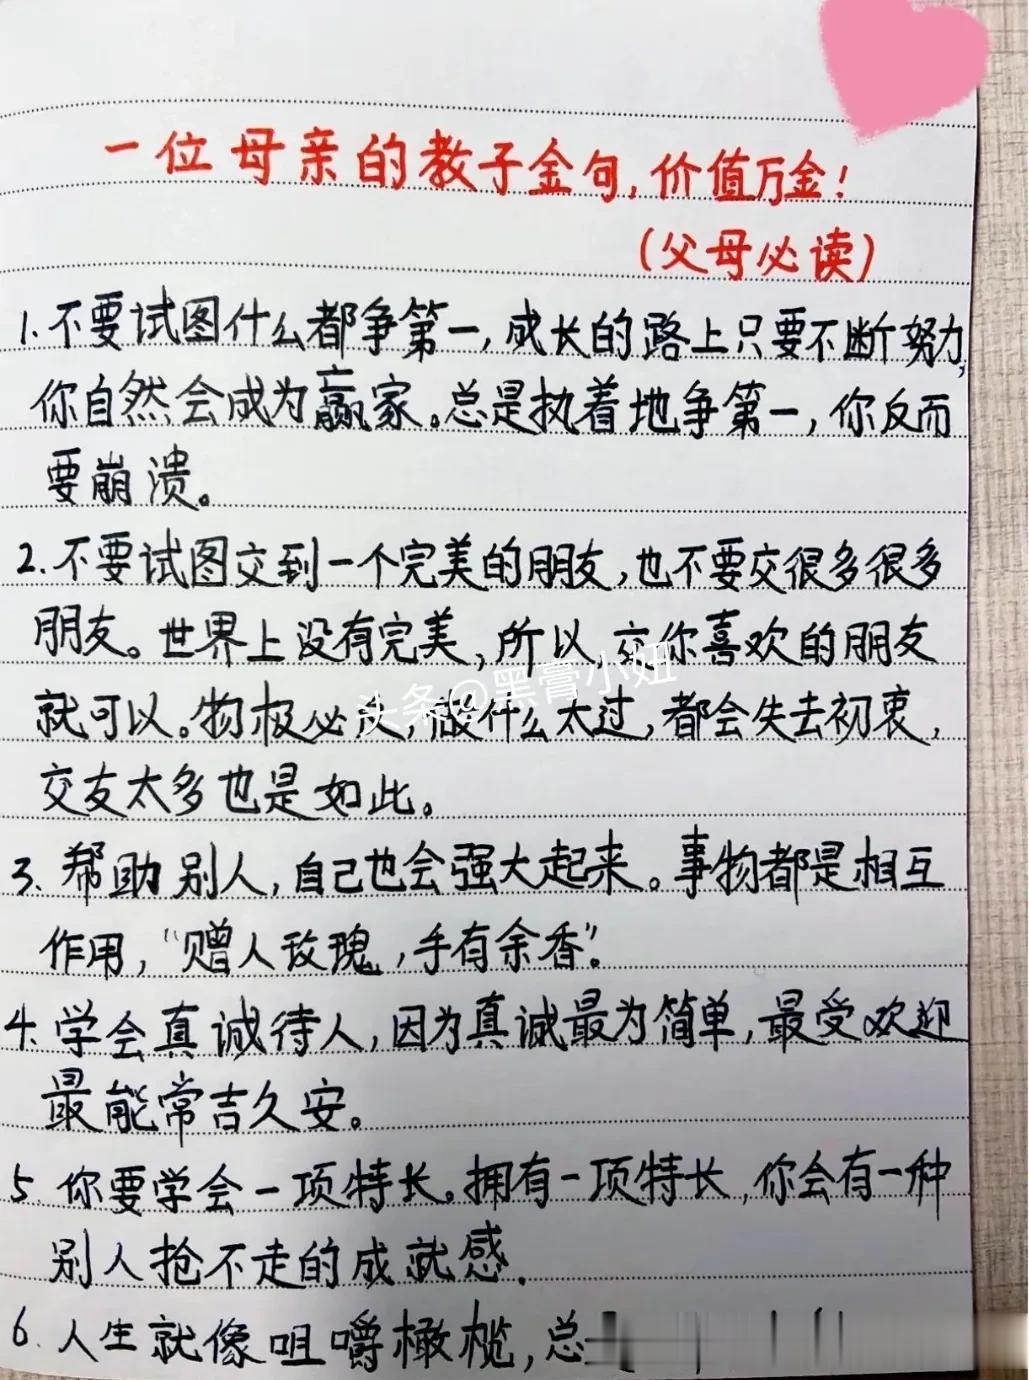 一位母亲的教子金句,价值万金!
(父母必读)
1.不要试图什么都争第一,成长的路上只要不断努力,
你自然会成为赢家。总是执着地争第一,你反而
要崩溃。
2.不要试图交到一个完美的朋友,也不要交很多很多
朋友。世界上没有完美,所以交你喜欢的朋友
就可以。物极必,做什么太过,都会失去初衷,
头条@黑膏小妞
交友太多也是如此。
3、帮助别人,自己也会强大起来。事物都是相互
作用,“赠人玫瑰,手有余香”。
4.学会真诚待人,因为真诚最为简单,最受欢迎
最能常吉久安。
5、你要学会一项特长。拥有一项特长,你会有一种
别人抢不走的成就感.
6、人生就像咀嚼橄榄,总